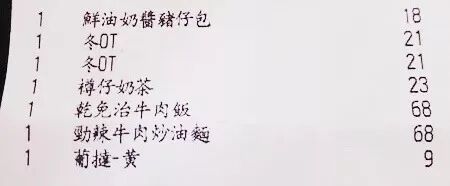 1 鮮油奶醬豬仔包 18
1 冬OT 21
1 冬OT 21
1 樽仔奶茶 23
1 乾免治牛肉飯 68
1 勁辣牛肉炒油麵 68
1 葡撻-黄 9